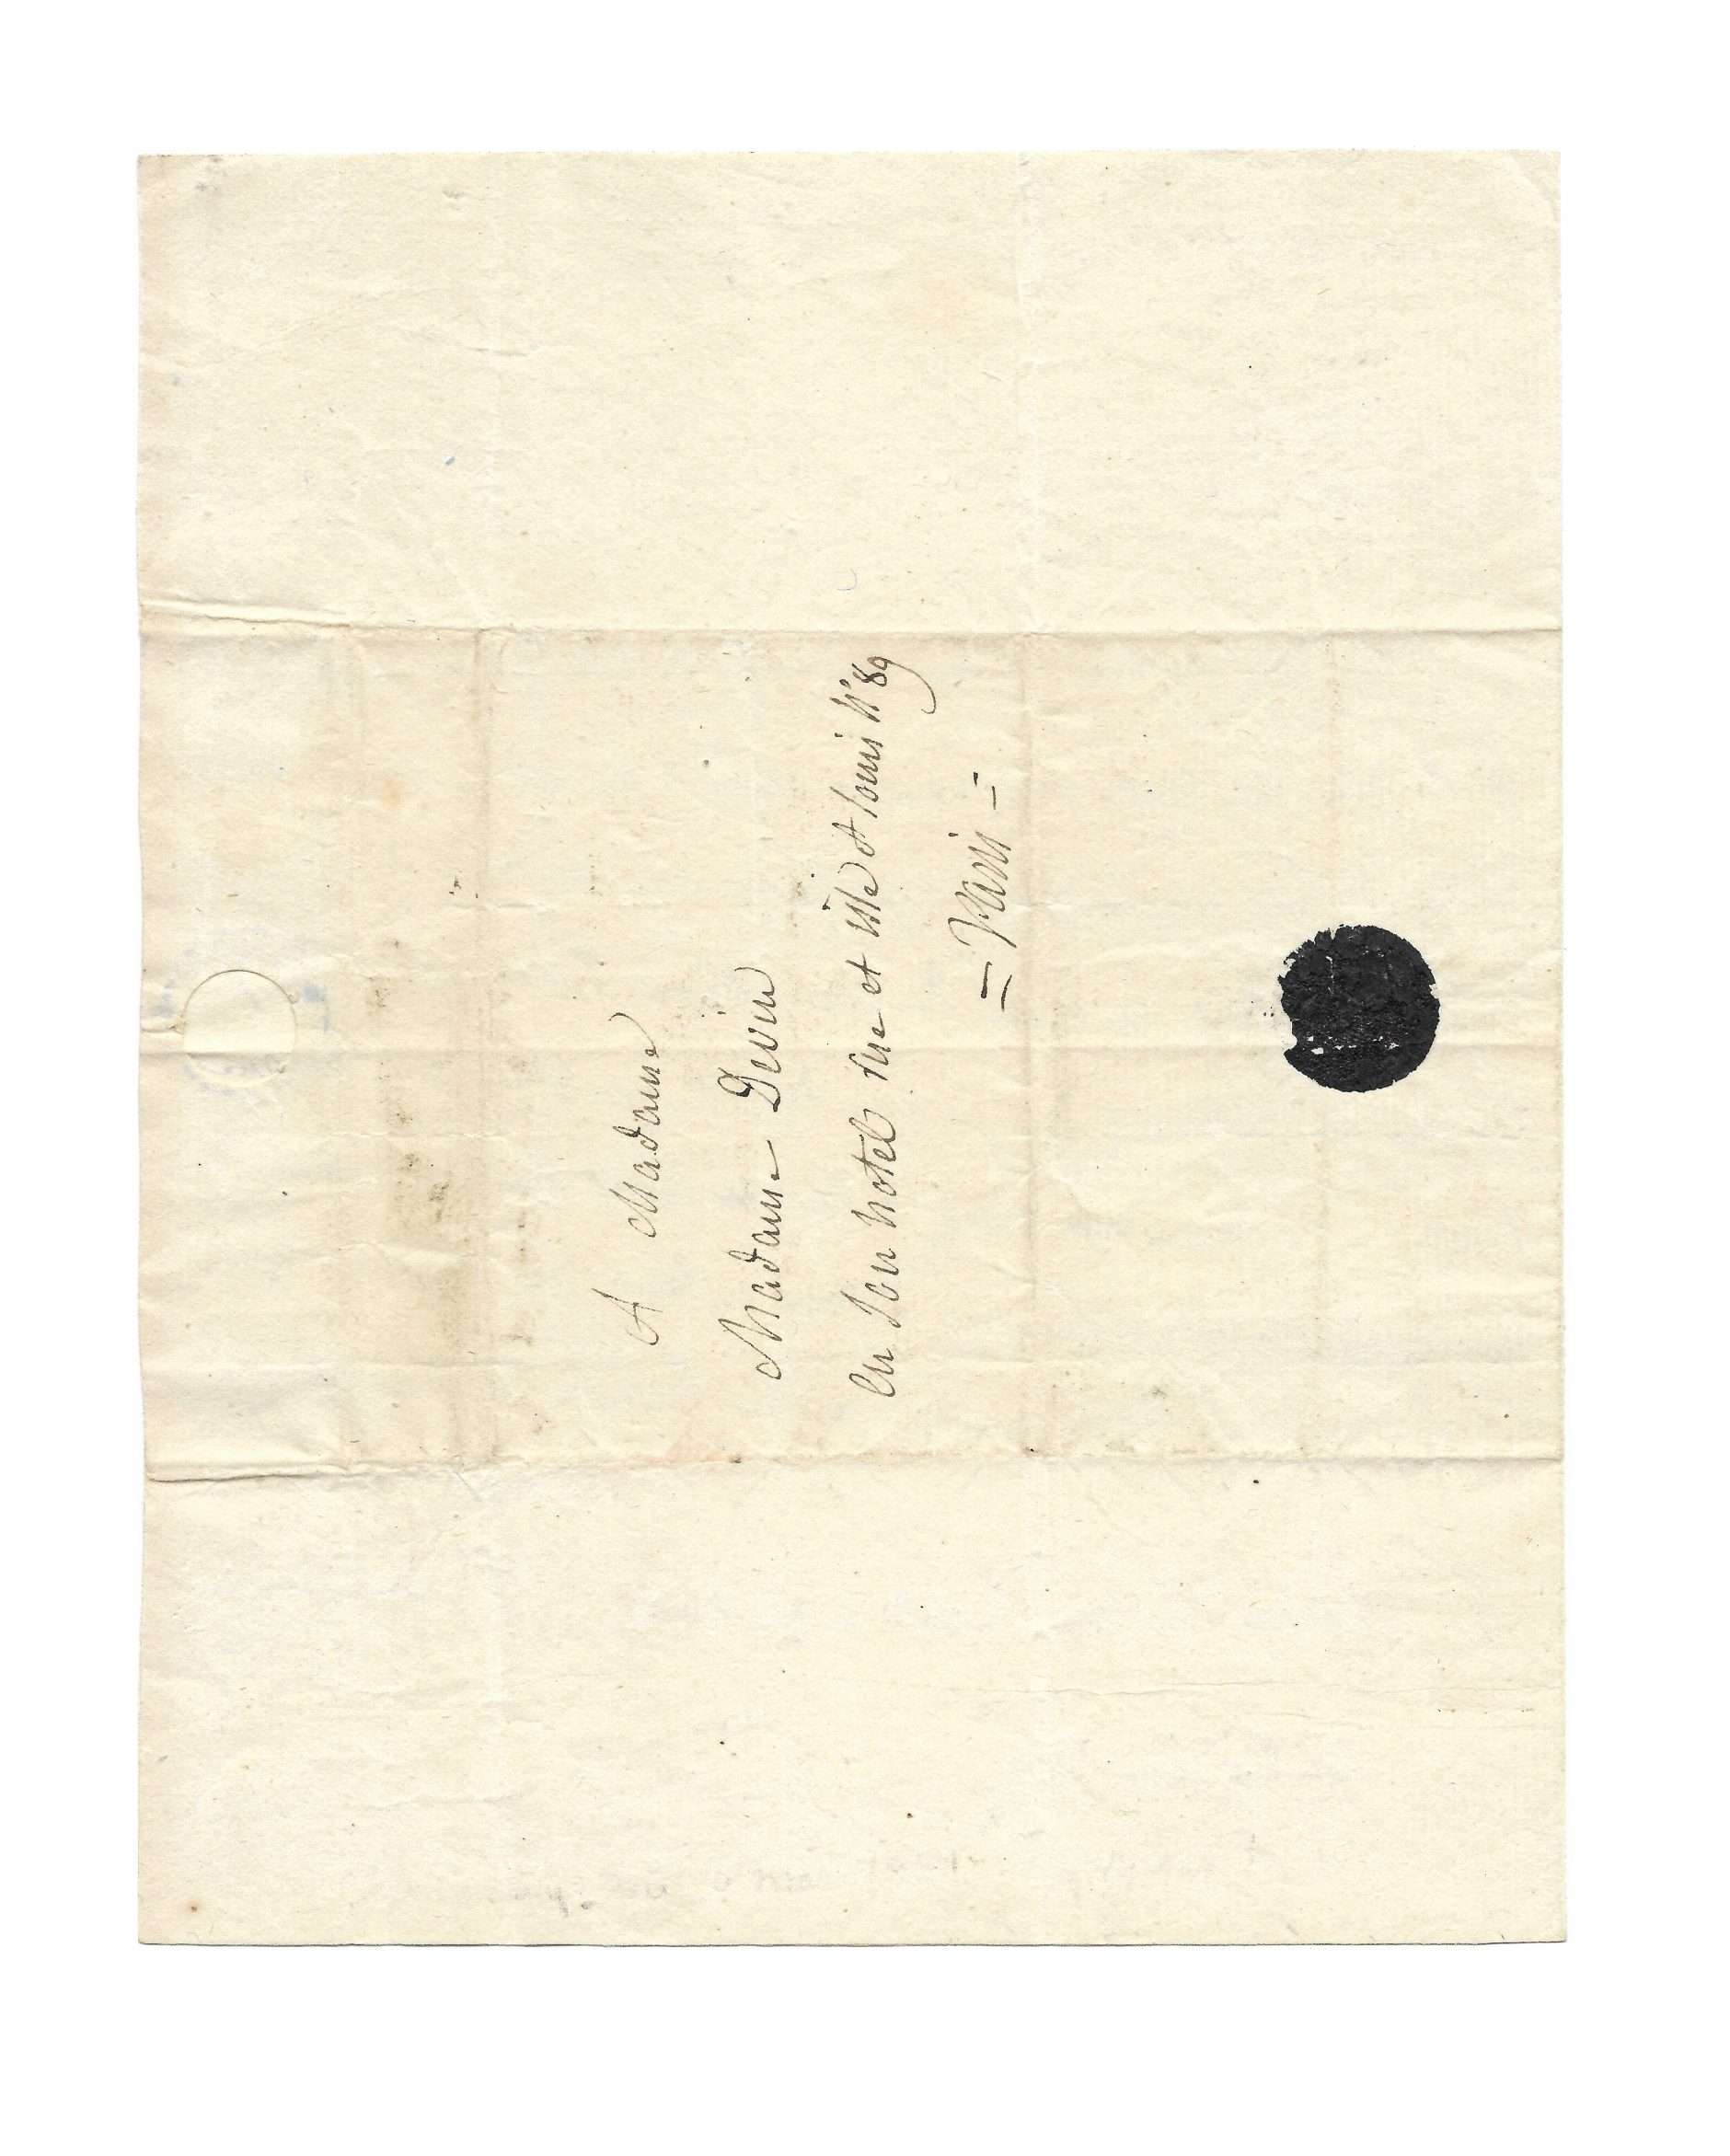 A Madame
Madame Devin
En Son hotel rue et isle St Louis N° 89
= Paris =